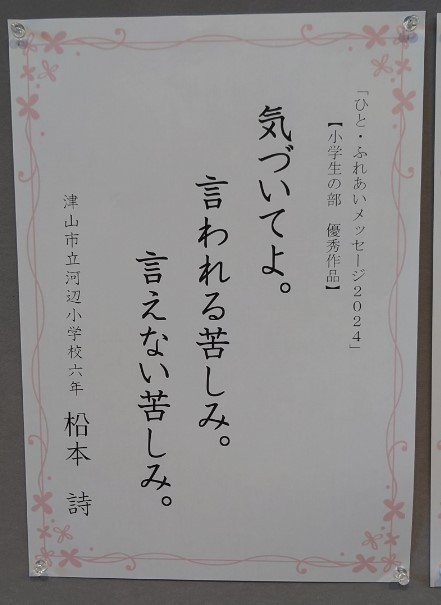 「ひと・ふれあいメッセージ２０２４」
【小学生の部　優秀作品】
気づいてよ。
言われる苦しみ。
言えない苦しみ。
津山市立河辺小学校六年　柗本　詩